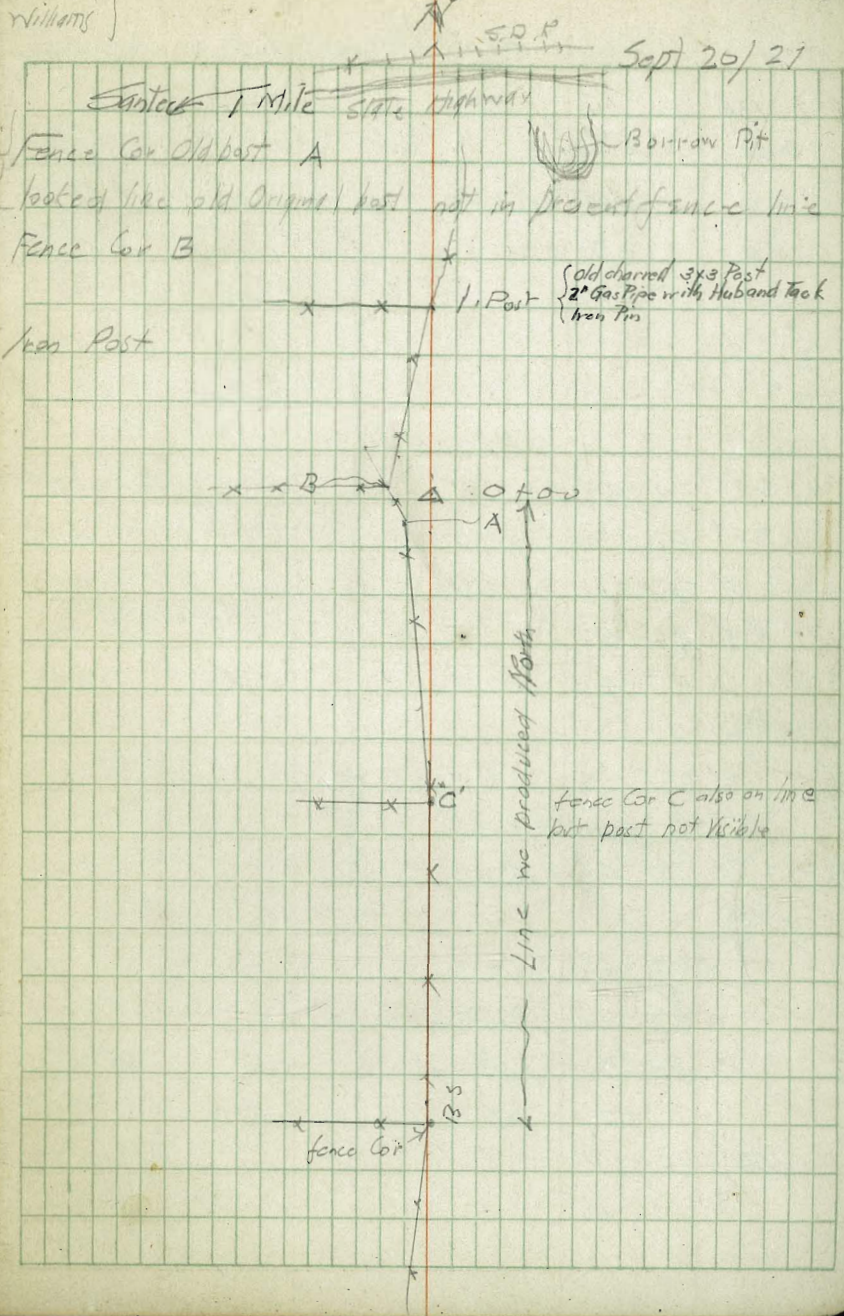 Williams }
N
S.D.R
Sept 20/21
Santee 1 Mile State Highway
Borrow Pit
Fence Cor Old post A
looked like old Original post not in present fence line
Fence Cor B
1. Post { old charred 3x3 Post
2" Gas Pipe with Hub and Tack
Iron Pin
Iron Post
B
Δ 0+00
A
Line we produced North
C'
fence Cor C also on line
but post not Visible
B S
fence Cor